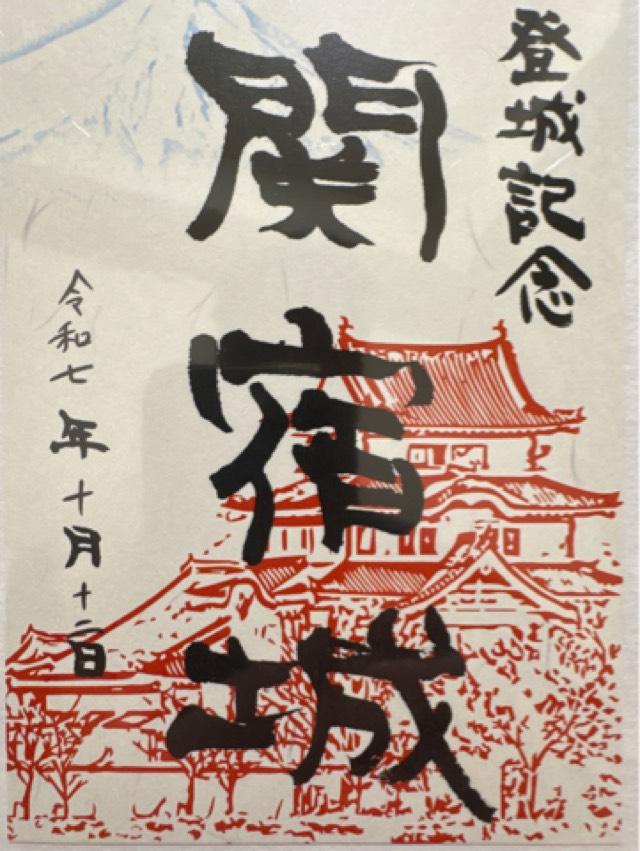 登城記念
関宿城
令和七年十月十二日